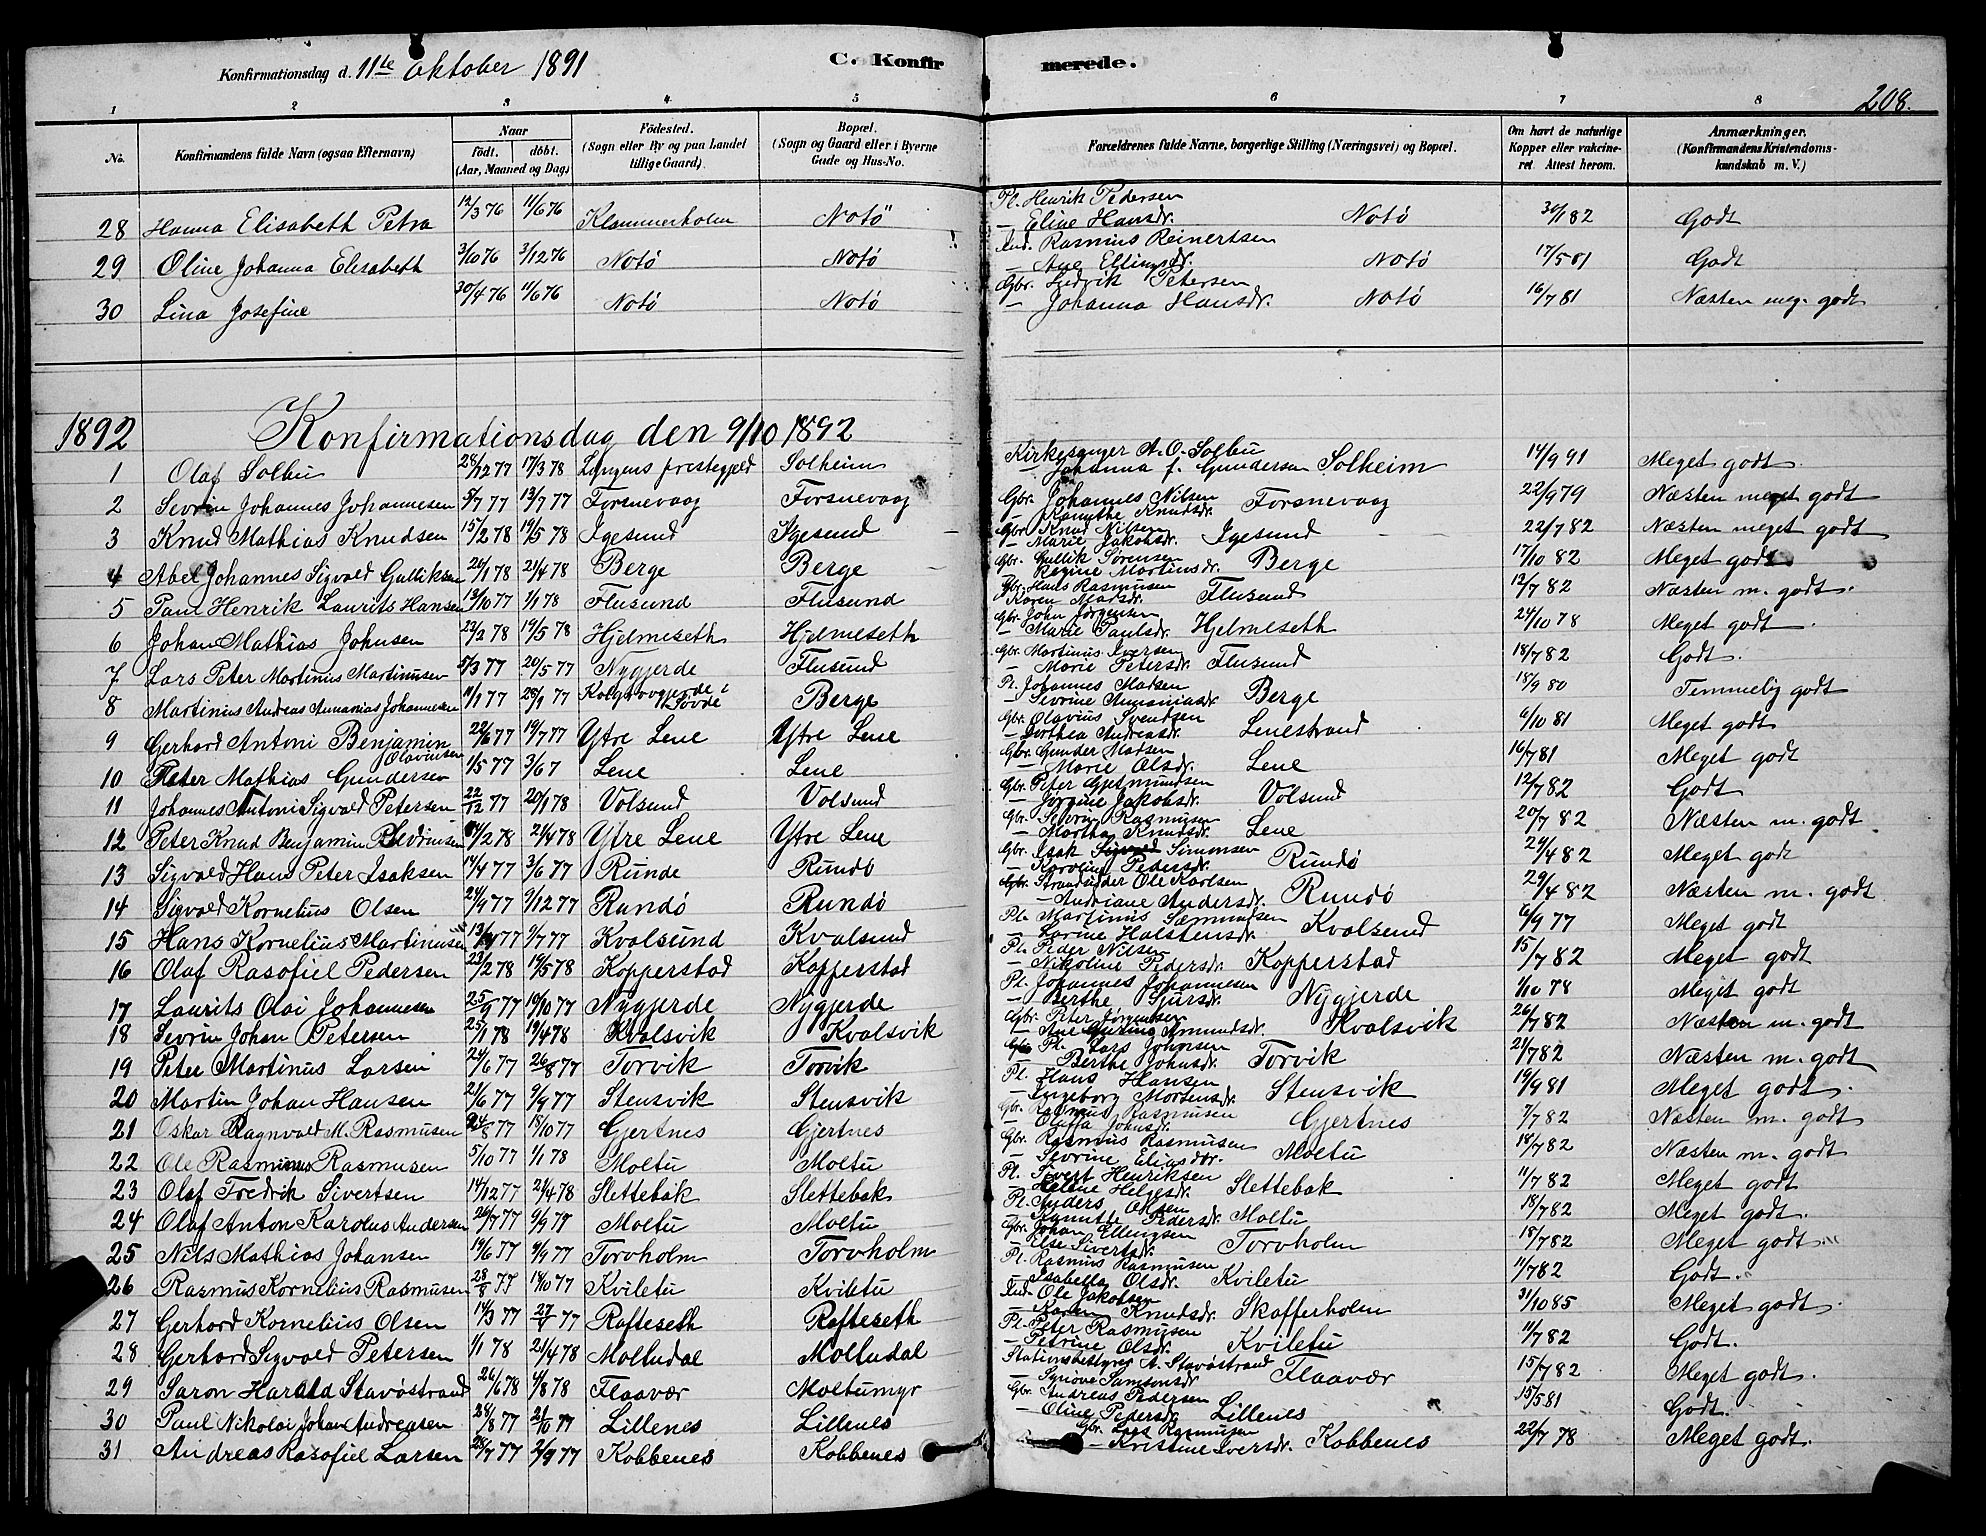 Konfirmationsdag d. 11te Oktober 1891 C. Konfir merede. 208.
1 2 3 4 5 6 7 8
No. Konfirmandens fulde Navn (ogsaa Efternavn) Naar født. døbt. (Aar, Maaned og Dag) Fødested. (Sogn eller By og paa Landet tillige Gaard). Bopæl. (Sogn og Gaard eller i Byerne Gade og Hus-No. Forældrenes fulde Navne, borgerlige Stilling (Næringsvei) og Bopæl. Om havt de naturlige Kopper eller vakcineret. Attest herom. Anmærkninger. (Konfirmandens Kristendomskundskab m. V.)
28 Hanna Elisabeth Petra 12/3 76 11/6 76 Klammerholm Notø Pl. Henrik Pedersen - Eline Hansdr. Notø 30/1 82 Godt
29 Oline Johanna Elisabeth 3/10 76 3/12 76 Notø Notø Ind. Rasmus Reinertsen - Ane Ellingsdr. Notø 17/5 81 Godt
30 Lina Josefine 30/4 76 11/6 76 Notø Notø Gbr. Ludvik Petersen - Johanna Hansdr. Notø 16/7 81 Næsten meg. godt
1892 Konfirmationsdag den 9/10 1892
1 Olaf Solbu 28/12 77 17/3 78 Lyngens prestegjeld Solheim Kirkesanger A. O. Solbu - Johanna f. Gundersen Solheim 14/9 91 Meget godt.
2 Sevrin Johannes Johannesen 5/7 77 13/7 77 Forsnevaag Forsnevaag Gbr. Johannes Nilsen - Ranvthe Knudsdr. Forsnevaag 22/9 79 Næsten meget godt
3 Knud Mathias Knudsen 15/2 78 19/5 78 Igesund Igesund Gbr. Knud Nilsen - Marie Jakobsdr. Igesund 22/7 82 Næsten meget godt
4 Abel Johannes Sigvald Gulliksen 26/1 78 21/4 78 Berge Berge Gbr. Gullik Sørensen - Regine Martinsdr. Berge 17/10 82 Meget godt
5 Paul Henrik Laurits Hansen 13/10 77 1/1 78 Flusund Flusund Gbr. Hans Rasmusen - Karen Madsdr. Flusund 12/7 82 Næsten m. godt.
6 Johan Mathias Johnsen 22/2 78 19/5 78 Hjelmeseth Hjelmeseth Gbr. John Jørgensen - Marie Paulsdr. Hjelmeseth 24/10 78 Meget godt.
7 Lars Peter Martinus Martinusen 5/3 77 20/5 77 Nygjerde Flusund Gbr. Martinus Iversen - Marie Petersdr. Flusund 18/7 82 Godt.
8 Martinus Andreas Annanias Johannesen 11/1 77 28/1 77 i Søvde Berge Pl. Johannes Madsen - Sevrine Annaniasdr. Berge 18/9 80 Temmelig godt
9 Gerhard Antoni Benjamin Olavusen 22/6 77 19/7 77 Ytre Lene Ytre Lene Gbr. Olavius Sventsen - Dorthea Andreasdr. Lenestrand 6/10 81 Meget godt
10 Peter Mathias Gundersen 1/5 77 3/6 7 Lene Lene Gbr. Gunder Madsen - Marie Olsdr. Lene 16/7 81 Meget godt
11 Johannes Antoni Sigvald Petersen 22/12 77 20/1 78 Volsund Volsund Gbr. Peter Gjetmundsen - Jørgine Jakobsdr. Volsund 12/7 82 Godt
12 Peter Knud Benjamin Sevrinsen 14/2 78 21/4 78 Ytre Lene Ytre Lene Gbr. Sevrin Rasmusen - Martha Knudsdr. Lene 20/7 82 Næsten m. godt
13 Sigvald Hans Peter Isaksen 14/4 77 3/6 77 Runde Rundø Gbr. Isak Simonsen - Karoline Pedersdr. Rundø 24/4 82 Meget godt
14 Sigvald Kornelius Olsen 24/9 77 9/12 77 Rundø Rundø Gbr. Strandsidder Ole Karlsen - Andriane Andersdr. Rundø 29/4 82 Næsten m. godt
15 Hans Kornelius Martinusen 13/4 77 1/7 77 Kvalsund Kvalsund Pl. Martinus Sæmundsen - Larine Halstensdr. Kvalsund 6/9 77 Meget godt
16 Olaf Rasofiel Pedersen 23/2 78 19/5 78 Kopperstad Kopperstad Pl. Peder Nilsen - Nikoline Pedersdr. Kopperstad 15/7 82 Meget godt
17 Laurits Olai Johannesen 25/9 77 10/10 77 Nygjerde Nygjerde Pl. Johannes Johannesen - Berthe Sjursdr. Nygjerde 1/10 78 Meget godt
18 Sevrin Johan Petersen 25/1 78 19/4 78 Kvalsvik Kvalsvik Gbr. Peter Jørgensen - Ane Amundsdr. Kvalsvik 26/7 82 Næsten m. godt
19 Peter Martinus Larsen 24/6 77 26/8 77 Torvik Torvik Pl. Lars Johnsen - Berthe Johnsdr. Torvik 21/7 82 Næsten m. godt
20 Martin Johan Hansen 21/6 77 9/9 77 Stensvik Stensvik Pl. Hans Hansen - Ingeborg Mortensdr. Stensvik 19/9 81 Meget godt.
21 Oskar Ragnvald M. Rasmusen 24/8 77 18/10 77 Gjertnes Gjertnes Gbr. Rasmus Rasmusen - Olaffa Johnsdr. Gjertnes 7/7 82 Næsten m. godt
22 Ole Rasmus Rasmusen 5/10 77 1/1 78 Moltu Moltu Gbr. Rasmus Rasmusen - Sevrine Eliasdr. Moltu 18/7 82 Næsten m. godt.
23 Olaf Fredrik Sivertsen 14/12 77 21/4 78 Slettebak Slettebak Pl. Sivert Henriksen - Helene Helgesdr. Slettebak 11/7 82 Meget godt
24 Olaf Anton Karolus Andersen 26/7 77 9/9 77 Moltu Moltu Pl. Anders Olsen - Rannthe Pedersdr. Moltu 18/7 82 Meget godt.
25 Nils Mathias Johansen 19/6 77 9/9 77 Torvholm Torvholm Gbr. Johan Ellingsen - Else Sivertsdr. Torvholm 18/7 82 Meget godt
26 Rasmus Kornelius Rasmusen 28/8 77 14/10 77 Kviletu Kviletu Pl. Rasmus Rasmusen - Isabella Olsdr. Kviletu 11/7 82 Godt.
27 Gerhard Kornelius Olsen 14/3 77 Rafteseth Rafteseth Ind. Ole Jakobsen - Karen Knudsdr. Skafferholm 31/10 85 Meget godt.
28 Gerhard Sigvald Petersen 1/1 78 21/4 78 Moltudal Moltudal Pl. Peter Rasmusen - Petrine Olsdr. Kviletu 11/7 82 Godt.
29 Saron Harald Stavøstrand 26/6 78 4/8 78 Flaavær Moltumyr Stationsbestyrer A. Stavøstrand - Synøve Samsonsdr. Flaavær 15/7 82 Meget godt.
30 Paul Nikolai Johan Andreasen 28/8 77 21/10 77 Lillenes Lillenes Gbr. Andreas Pedersen - Oline Pedersdr. Lillenes 15/5 81 Godt.
31 Andreas Rasofiel Larsen 28/7 77 2/9 77 Kobbenes Kobbenes Gbr. Lars Rasmusen - Kristine Iversdr. Kobbenes 22/7 78 Meget godt.